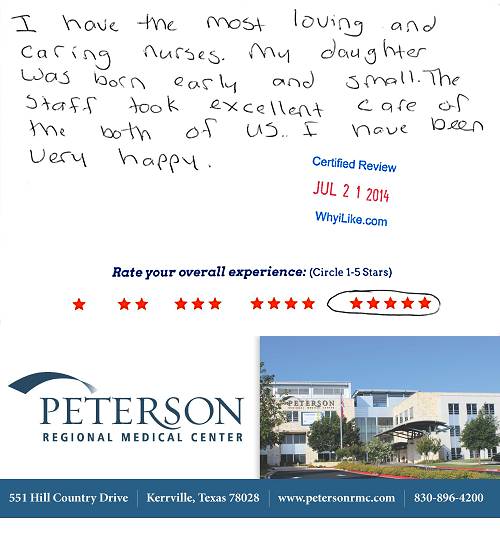 I have the most loving and
caring nurses. My daughter
was born early and small. The
staff took excellent care of
the both of us.. I have been
very happy.
Certified Review
JUL 21 2014
WhyiLike.com
Rate your overall experience: (Circle 1-5 Stars)
PETERSON
REGIONAL MEDICAL CENTER
PETERSON
REGIONAL MEDICAL CENTER
551 Hill Country Drive | Kerrville, Texas 78028 | www.petersonrmc.com | 830-896-4200